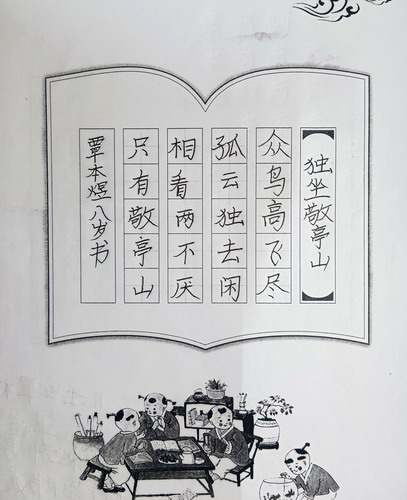 独坐敬亭山
众鸟高飞尽
孤云独去闲
相看两不厌
只有敬亭山
覃本煜八岁书